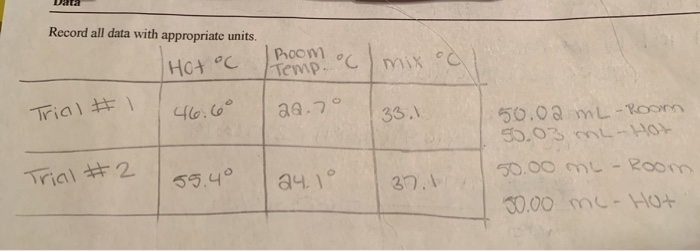 Data
Record all data with appropriate units.
Hot °C
Room Temp. °C
mix °C
Trial #1
46.6°
22.7°
33.1
50.02 mL - Room
50.03 mL - Hot
Trial #2
55.4°
24.1°
37.1
50.00 mL - Room
50.00 mL - Hot